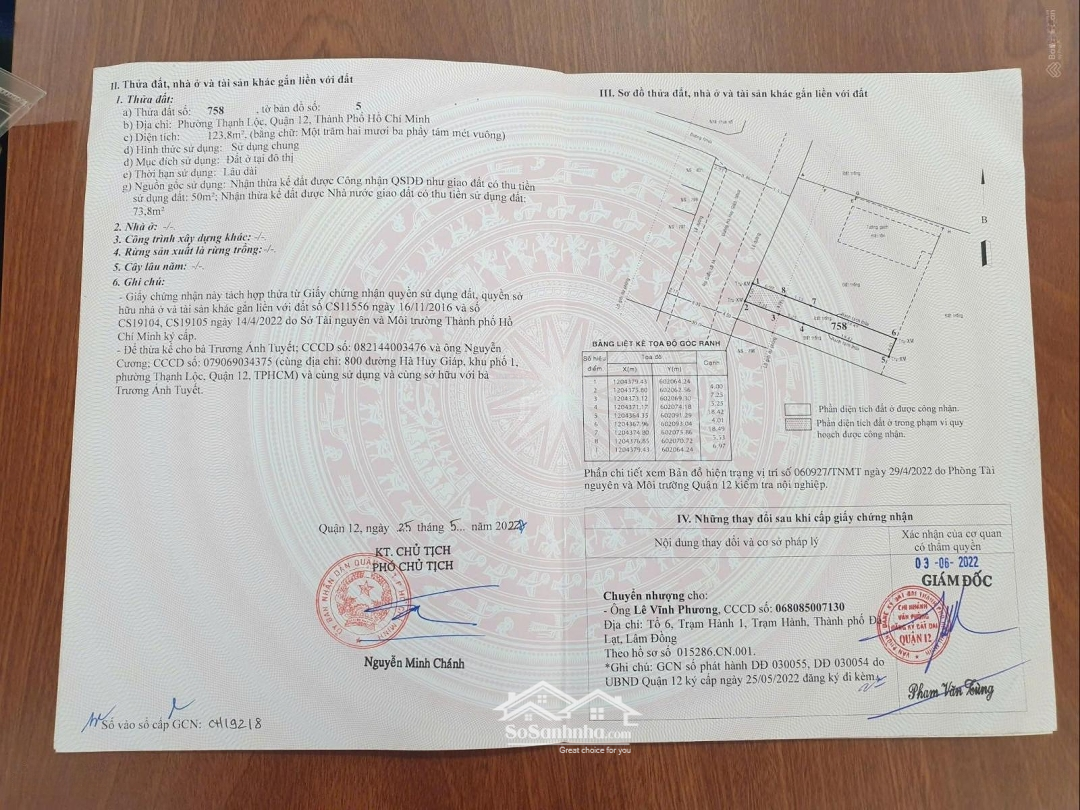 II. Thửa đất, nhà ở và tài sản khác gắn liền với đất
1. Thửa đất:
a) Thửa đất số: 758 , tờ bản đồ số: 5
b) Địa chỉ: Phường Thạnh Lộc, Quận 12, Thành Phố Hồ Chí Minh
c) Diện tích: 123,8m², (bằng chữ: Một trăm hai mươi ba phẩy tám mét vuông)
d) Hình thức sử dụng: Sử dụng chung
đ) Mục đích sử dụng: Đất ở tại đô thị
e) Thời hạn sử dụng: Lâu dài
g) Nguồn gốc sử dụng: Nhận thừa kế đất được Công nhận QSDĐ như giao đất có thu tiền
sử dụng đất: 50m²; Nhận thừa kế đất được Nhà nước giao đất có thu tiền sử dụng đất:
73,8m²
2. Nhà ở: -/-
3. Công trình xây dựng khác: -/-
4. Rừng sản xuất là rừng trồng: -/-
5. Cây lâu năm: -/-
6. Ghi chú:
- Giấy chứng nhận này tách hợp thửa từ Giấy chứng nhận quyền sử dụng đất, quyền sở
hữu nhà ở và tài sản khác gắn liền với đất số CS11556 ngày 16/11/2016 và số
CS19104, CS19105 ngày 14/4/2022 do Sở Tài nguyên và Môi trường Thành phố Hồ
Chí Minh ký cấp.
- Để thừa kế cho bà Trương Ánh Tuyết; CCCD số: 082144003476 và ông Nguyễn
Cương; CCCD số: 079069034375 (cùng địa chỉ: 800 đường Hà Huy Giáp, khu phố 1,
phường Thạnh Lộc, Quận 12, TPHCM) và cùng sử dụng và cùng sở hữu với bà
Trương Ánh Tuyết.
Quận 12, ngày 25 tháng 5... năm 2022
KT. CHỦ TỊCH
PHÓ CHỦ TỊCH
Nguyễn Minh Chánh
Số vào sổ cấp GCN: CH19218
III. Sơ đồ thửa đất, nhà ở và tài sản khác gắn liền với đất
B
1
8
7
2
3
4
758
6
5
BẢNG LIỆT KÊ TỌA ĐỘ GÓC RANH
Số hiệu điểm Tọa độ Cạnh
X(m) Y(m)
1 1204379.43 602064.24
4.00
2 1204375.80 602062.56
7.23
3 1204373.12 602069.30
5.25
4 1204371.17 602074.18
18.42
5 1204364.35 602091.29
4.01
6 1204367.96 602093.04
18.49
7 1204374.80 602075.86
5.53
8 1204376.85 602070.72
6.97
1 1204379.43 602064.24
Phần diện tích đất ở được công nhận.
Phần diện tích đất ở trong phạm vi quy
hoạch được công nhận.
Phần chi tiết xem Bản đồ hiện trạng vị trí số 060927/TNMT ngày 29/4/2022 do Phòng Tài
nguyên và Môi trường Quận 12 kiểm tra nội nghiệp.
IV. Những thay đổi sau khi cấp giấy chứng nhận
Nội dung thay đổi và cơ sở pháp lý
Xác nhận của cơ quan
có thẩm quyền
03 -06- 2022
GIÁM ĐỐC
Chuyển nhượng cho:
- Ông Lê Vĩnh Phương, CCCD số: 068085007130
Địa chỉ: Tổ 6, Trạm Hành 1, Trạm Hành, Thành phố Đà
Lạt, Lâm Đồng
Theo hồ sơ số 015286.CN.001.
*Ghi chú: GCN số phát hành DĐ 030055, DĐ 030054 do
UBND Quận 12 ký cấp ngày 25/05/2022 đăng ký đi kèm
CHI NHÁNH
VĂN PHÒNG
ĐĂNG KÝ ĐẤT ĐAI
QUẬN 12
Phạm Văn Dũng
SoSanhnha.com
Great choice for you